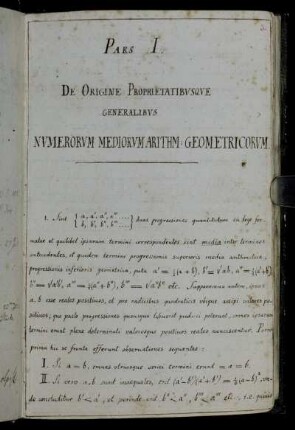 Pars I.
De Origine Proprietatibusque
generalibus
numerorum mediorum arithm. geometricorum.
1. Sint { a, a', a'', a''' ..... / b, b', b'', b''' ..... } duae progressiones quantitatum ea lege for-
matae ut quilibet ipsarum termini correspondentes sint media inter terminos
antecedentes, et quidem termini progressionis superioris media arithmetica,
progressionis inferioris geometrica, puta a' = ½(a + b), b' = √ab, a'' = ½(a' + b'),
b'' = √a'b', a''' = ½(a'' + b''), b''' = √a''b'' etc. Supponemus autem, ipsos
a, b esse reales positivos, et pro radicibus quadraticis ubique accipi valores po-
sitivos; quo pacto progressiones quousque libuerit produci poterunt, omnes ipsarum
termini erunt plene determinati valoresque positivos reales nanciscentur. Porro
prima hic se fronte offerunt observationes sequentes:
I. Si a = b, omnes utriusque seriei termini erunt = a = b.
II. Si vero a, b sunt inaequales, erit (a' - b')(a' + b') = ¼(a - b)²,
concluditur b' < a', et perinde erit b'' < a'', b''' < a''' etc., i.e. quivis